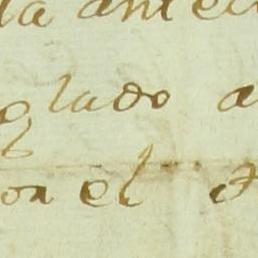 la antec
glado a
on el